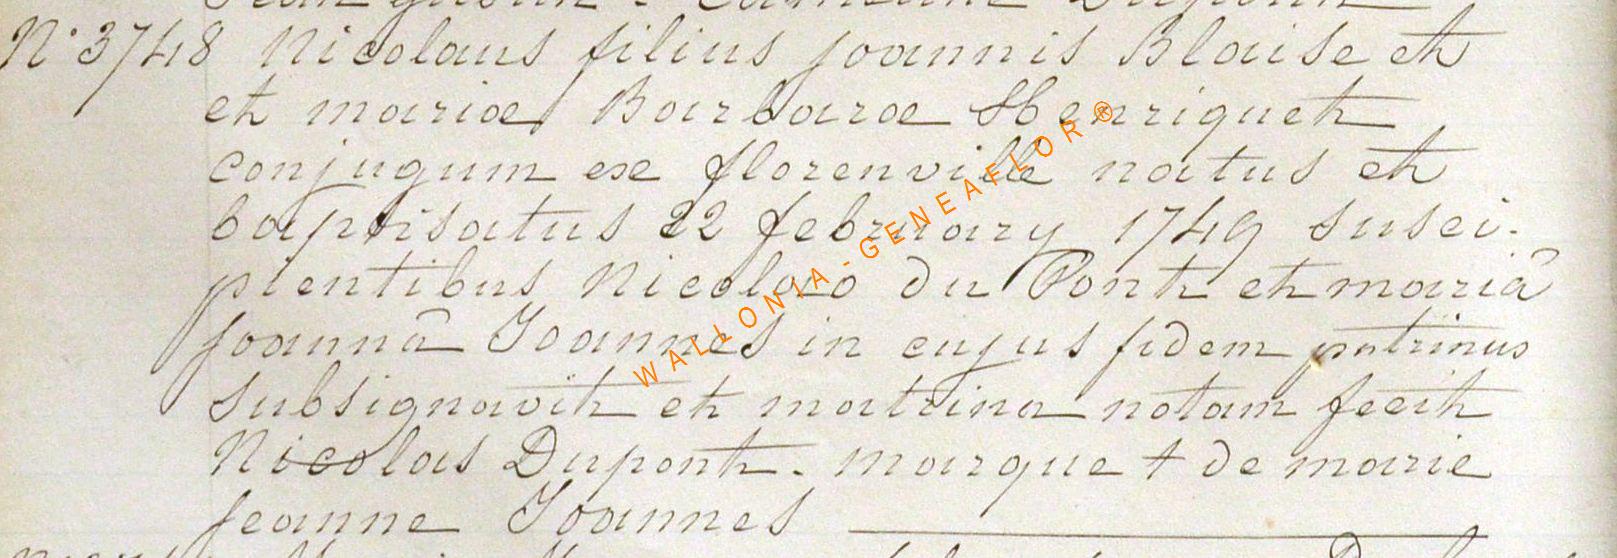 N° 3748 Nicolaus filius joannis Blaise et
et mariæ Barbaræ Henriquet
conjugum ex florenville natus et
baptisatus 22 february 1749 susci-
pientibus Nicolao du Pont et mariâ
joannâ Joannes in cujus fidem patrinus
subsignavit et matrina notam fecit
Nicolas Dupont. marque + de marie
jeanne Joannes
WALLONIA-GENEAFLOR®